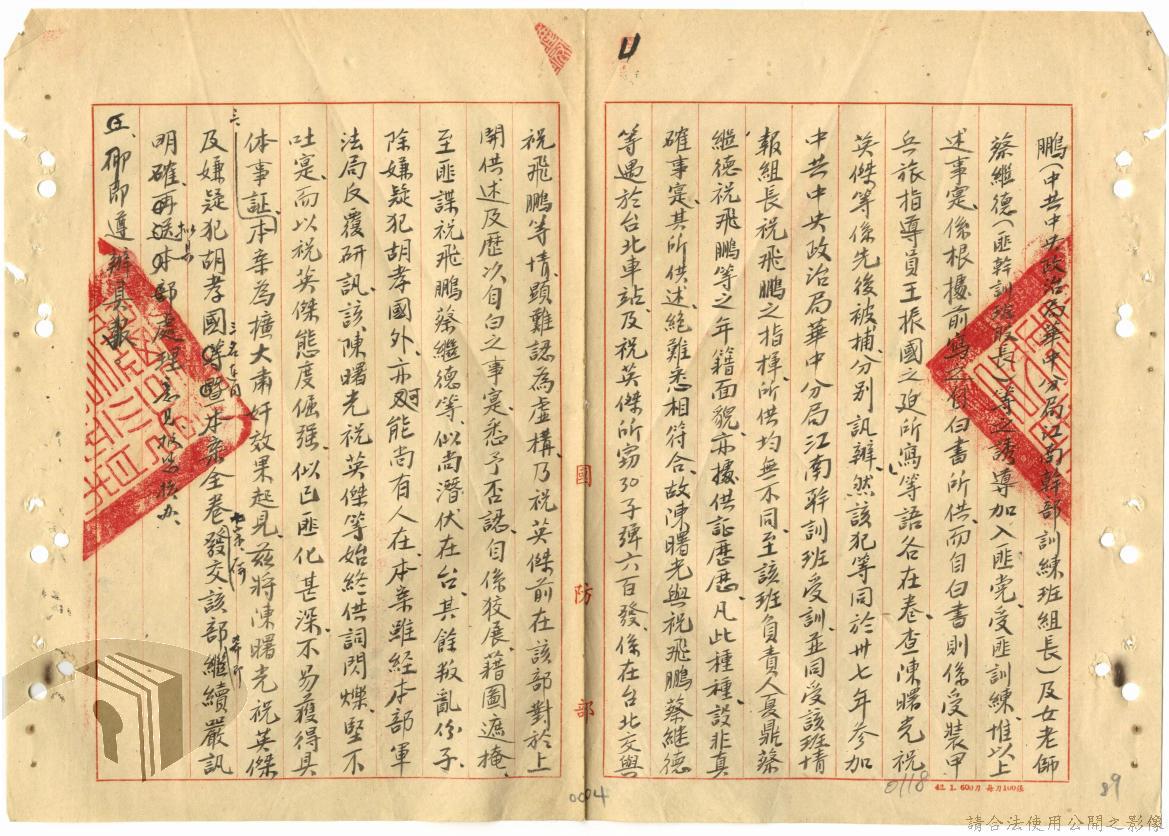 鵬(中共中央政治局華中分局江南幹部訓練班組長)及女老師
蔡繼德(匪幹訓班股長)等之誘導加入匪党、受匪訓練、惟以上
述事寔係根據前寫之自白書所供、而自白書則係受裝甲
兵旅指導員王振國之迫所寫、等語各在卷、查陳曙光祝
英傑等係先後被捕、分别訊辦、然該犯等同於卅七年參加
中共中央政治局華中分局江南幹訓班受訓、並同受該班情
報組長祝飛鵬之指揮、所供均無不同、至該班負責人夏鼎蔡
繼德祝飛鵬等之年籍面貌、亦據供証歷歷、凡此種種、設非真
確事寔、其所供述、絕難悉相符合、故陳曙光與祝飛鵬蔡继德
等遇於台北車站、及祝英傑所窃30子彈六百發、係在台北交與
祝飛鵬等情、顯難認為虛構、乃祝英傑前在該部對於上
開供述及歷次自白之事寔、悉予否認、自係狡展、藉圖遮掩、
至匪諜祝飛鵬蔡继德等、似尚潛伏在台、其餘叛亂份子
除嫌疑犯胡孝國外、亦可能尚有人在、本案雖經本部軍
法局反覆研訊、該陳曙光祝英傑等始終供詞閃爍、堅不
吐寔、而以祝英傑態度倔强、似已匪化甚深、不易獲得具
体事証、本案為擴大肅奸效果起見、茲將陳曙光祝英傑
三、
及嫌疑犯胡孝國等暨本案全卷發交該部繼續嚴訊
三名在內
希即
明確、再送本部處理
擬具
意見報告核办、
五、仰即遵辦具報
國防部
42. 1. 600刀 每刀100張
0118
89
0094
請合法使用公開之影像